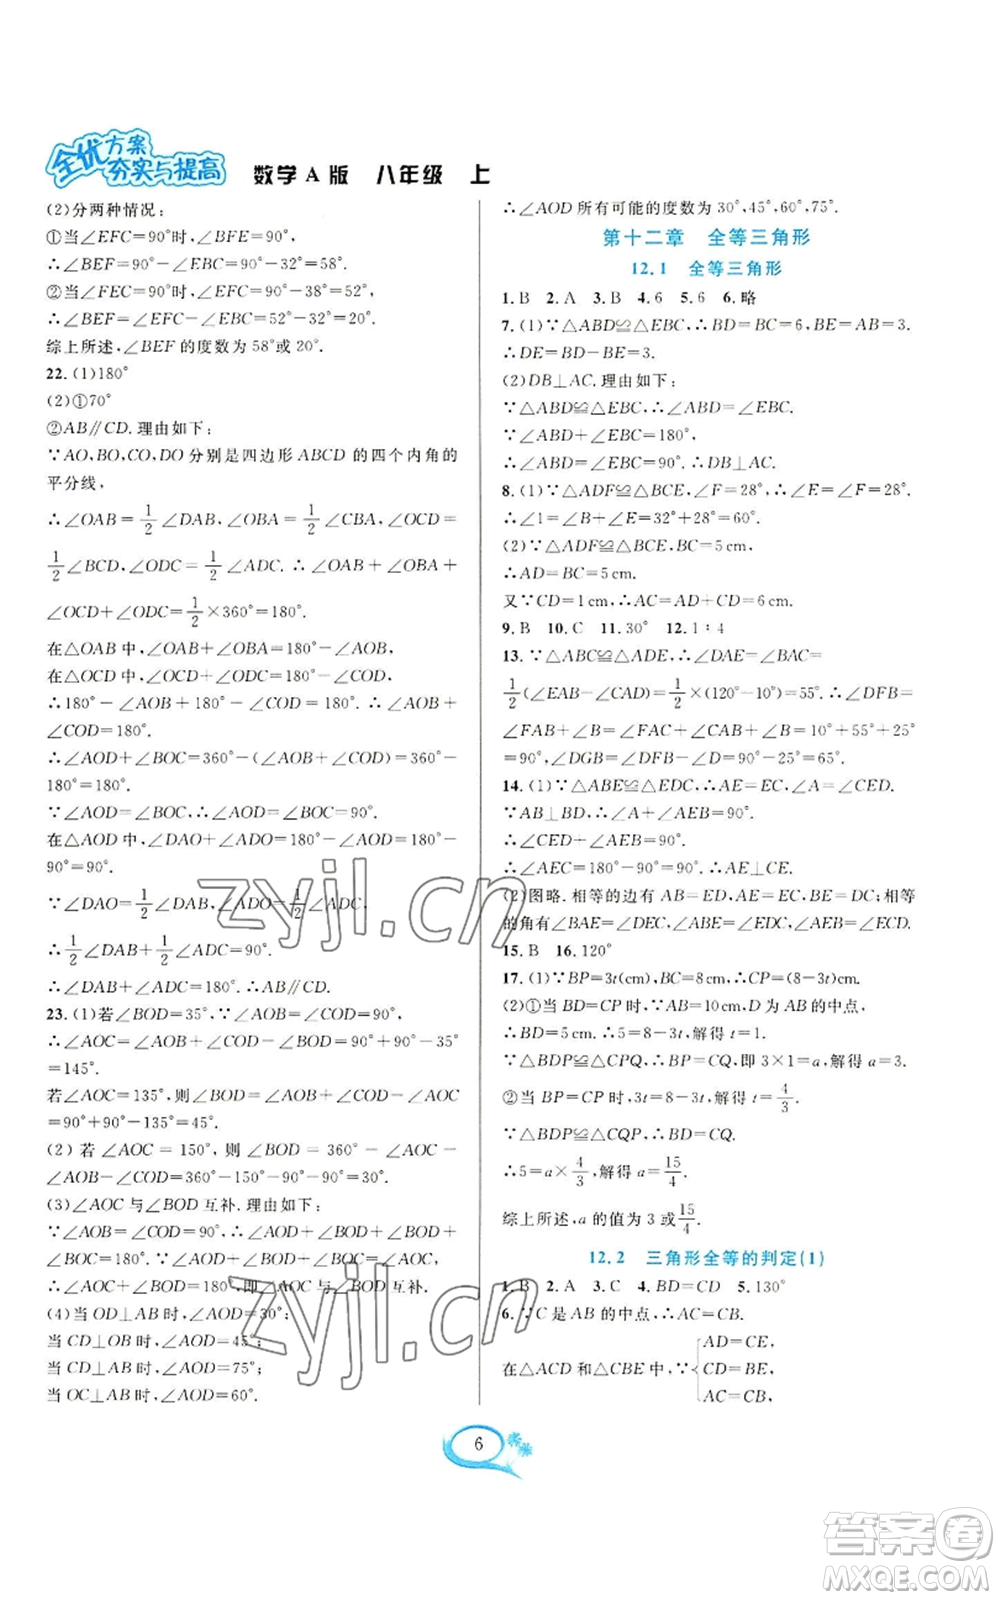 全优方案
夯实与提高
数学A版 八年级 上
(2)分两种情况:
①当∠EFC=90°时,∠BFE=90°;
∴∠BEF=90°-∠EBC=90°-32°=58°.
②当∠FEC=90°时,∠EFC=90°-38°=52°.
∴∠BEF=∠EFC-∠EBC=52°-32°=20°.
综上所述,∠BEF的度数为58°或20°.
22.(1)180°
(2)①70°
②AB∥CD.理由如下:
∵AO,BO,CO,DO分别是四边形ABCD的四个内角的
平分线,
∴∠OAB=1/2∠DAB,∠OBA=1/2∠CBA,∠OCD=
1/2∠BCD,∠ODC=1/2∠ADC.∴∠OAB+∠OBA+
∠OCD+∠ODC=1/2×360°=180°.
在△OAB中,∠OAB+∠OBA=180°-∠AOB,
在△OCD中,∠OCD+∠ODC=180°-∠COD,
∴180°-∠AOB+180°-∠COD=180°.∴∠AOB+
∠COD=180°.
∴∠AOD+∠BOC=360°-(∠AOB+∠COD)=360°-
180°=180°.
∵∠AOD=∠BOC,∴∠AOD=∠BOC=90°.
在△AOD中,∠DAO+∠ADO=180°-∠AOD=180°-
90°=90°.
∵∠DAO=1/2∠DAB,∠ADO=1/2∠ADC,
∴1/2∠DAB+1/2∠ADC=90°.
∴∠DAB+∠ADC=180°.∴AB∥CD.
23.(1)若∠BOD=35°,∵∠AOB=∠COD=90°,
∴∠AOC=∠AOB+∠COD-∠BOD=90°+90°-35°
=145°.
若∠AOC=135°,则∠BOD=∠AOB+∠COD-∠AOC
=90°+90°-135°=45°.
(2)若∠AOC=150°,则∠BOD=360°-∠AOC-
∠AOB-∠COD=360°-150°-90°-90°=30°.
(3)∠AOC与∠BOD互补.理由如下:
∵∠AOB=∠COD=90°,∴∠AOD+∠BOD+∠BOD+
∠BOC=180°.
∵∠AOD+∠BOD+∠BOC=∠AOC,
∴∠AOC+∠BOD=180°,即∠AOC与∠BOD互补.
(4)当OD⊥AB时,∠AOD=30°;
当CD⊥OB时,∠AOD=45°;
当CD⊥AB时,∠AOD=75°;
当OC⊥AB时,∠AOD=60°.
∴∠AOD所有可能的度数为30°,45°,60°,75°.
第十二章 全等三角形
12.1 全等三角形
1.B 2.A 3.B 4.6 5.6 6.略
7.(1)∵△ABD≌△EBC,∴BD=BC=6,BE=AB=3.
∴DE=BD-BE=3.
(2)DB⊥AC.理由如下:
∵△ABD≌△EBC,∴∠ABD=∠EBC.
∵∠ABD+∠EBC=180°,
∴∠ABD=∠EBC=90°.∴DB⊥AC.
8.(1)∵△ADF≌△BCE,∠F=28°,∴∠E=∠F=28°.
∴∠1=∠B+∠E=32°+28°=60°.
(2)∵△ADF≌△BCE,BC=5cm,
∴AD=BC=5cm.
又∵CD=1cm,∴AC=AD+CD=6cm.
9.B 10.C 11.30° 12.1∶4
13.∵△ABC≌△ADE,∴∠DAE=∠BAC=
1/2(∠EAB-∠CAD)=1/2×(120°-10°)=55°.∴∠DFB=
∠FAB+∠B=∠FAC+∠CAB+∠B=10°+55°+25°
=90°,∠DGB=∠DFB-∠D=90°-25°=65°.
14.(1)∵△ABE≌△EDC,∴AE=EC,∠A=∠CED.
∵AB⊥BD,∴∠A+∠AEB=90°.
∴∠CED+∠AEB=90°.
∴∠AEC=180°-90°=90°.∴AE⊥CE.
(2)图略.相等的边有AB=ED,AE=EC,BE=DC;相等
的角有∠BAE=∠DEC,∠AEB=∠ECD,∠B=∠D.
15.B 16.120°
17.(1)∵BP=3t(cm),BC=8cm,∴CP=(8-3t)cm.
(2)①当BD=CP时,∵AB=10cm,D为AB的中点,
∴BD=5cm.∴5=8-3t,解得t=1.
∵△BDP≌△CPQ,∴BP=CQ,即3×1=a,解得a=3.
②当BP=CP时,3t=8-3t,解得t=4/3.
∵△BDP≌△CQP,∴BD=CQ.
∴5=a×4/3,解得a=15/4.
综上所述,a的值为3或15/4.
12.2 三角形全等的判定(1)
1.B 2.A 3.C 4.BD=CD 5.130°
6.∵C是AB的中点,∴AC=CB.
在△ACD和△CBE中,∵{AD=CE,
CD=BE,
AC=CB,
6
zyjl.cn
zyjl.cn
答案卷
MXQE.COM